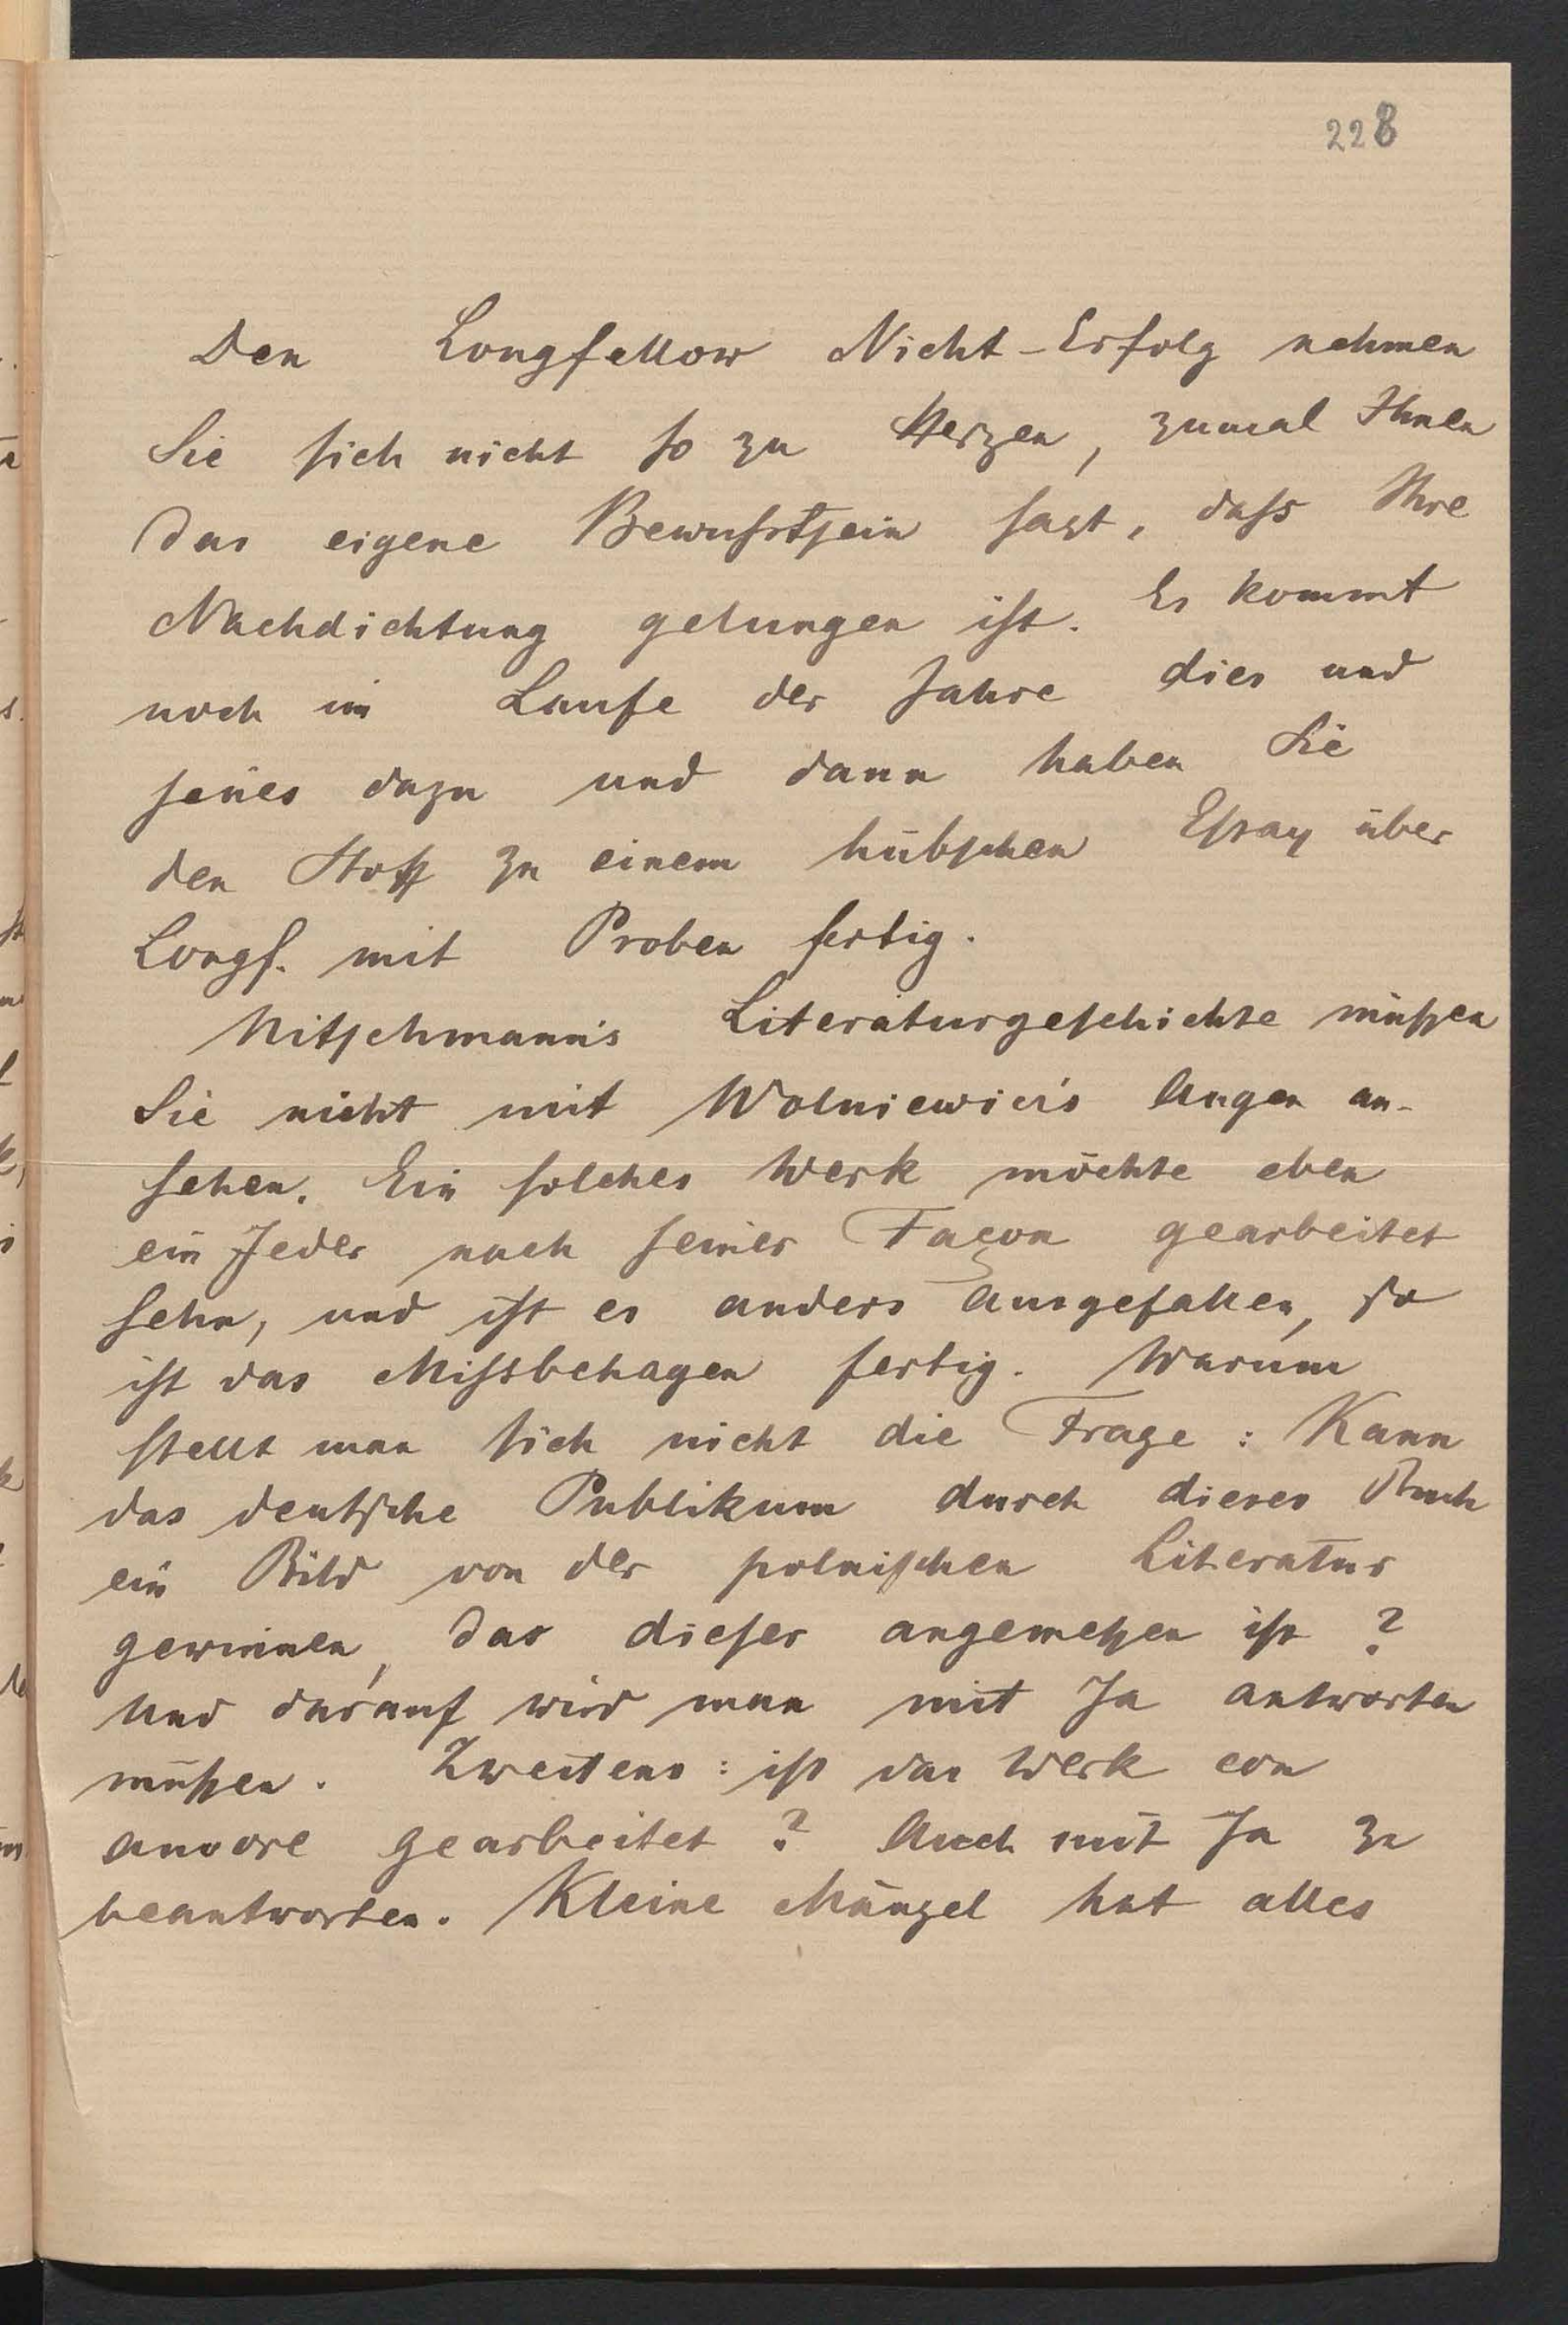 228
Den Longfellow Nicht-Erfolg nehmen
Sie sich nicht so zu Herzen, zumal Ihnen
das eigene Bewußtsein sagt, daß Ihre
Nachdichtung gelungen ist. Es kommt
noch im Laufe der Jahre dies und
jenes dazu und dann haben Sie
den Stoff zu einem hübschen Essay über
Longf. mit Proben fertig.
Nitschmann's Literaturgeschichte müssen
Sie nicht mit Wolniewicis Augen an-
sehen. Ein solches Werk möchte eben
ein Jeder nach seiner Façon gearbeitet
sehn, und ist es anders ausgefallen, so
ist das Missbehagen fertig. Warum
stellt man sich nicht die Frage: Kann
das deutsche Publikum durch dieses Buch
ein Bild von der polnischen Literatur
gewinnen, das dieser angemessen ist?
Und darauf wird man mit Ja antworten
müssen. Zweitens: ist das Werk con
amore gearbeitet? Auch mit Ja zu
beantworten. Kleine Mängel hat alles